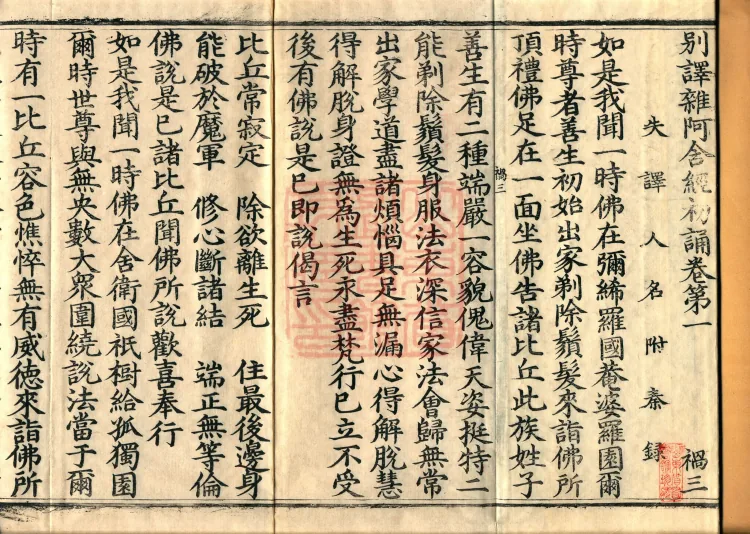 別譯雜阿含經初誦卷第一 禍三
失譯人名附秦録
如是我聞一時佛在彌絺羅國菴婆羅園爾
時尊者善生初始出家剃除鬚髮來詣佛所
頂禮佛足在一面坐佛告諸比丘此族姓子
善生有二種端嚴一容貌傀偉天姿挺特二
禍三
能剃除鬚髮身服法衣深信家法會歸無常
出家學道盡諸煩惱具足無漏心得解脫慧
得解脫身證無為生死永盡梵行已立不受
後有佛說是已即說偈言
比丘常寂定 除欲離生死 住最後邊身
能破於魔軍 修心斷諸結 端正無等倫
佛說是已諸比丘聞佛所說歡喜奉行
如是我聞一時佛在舍衛國祇樹給孤獨園
爾時世尊與無央數大眾圍繞說法當于爾
時有一比丘容色憔悴無有威德來詣佛所